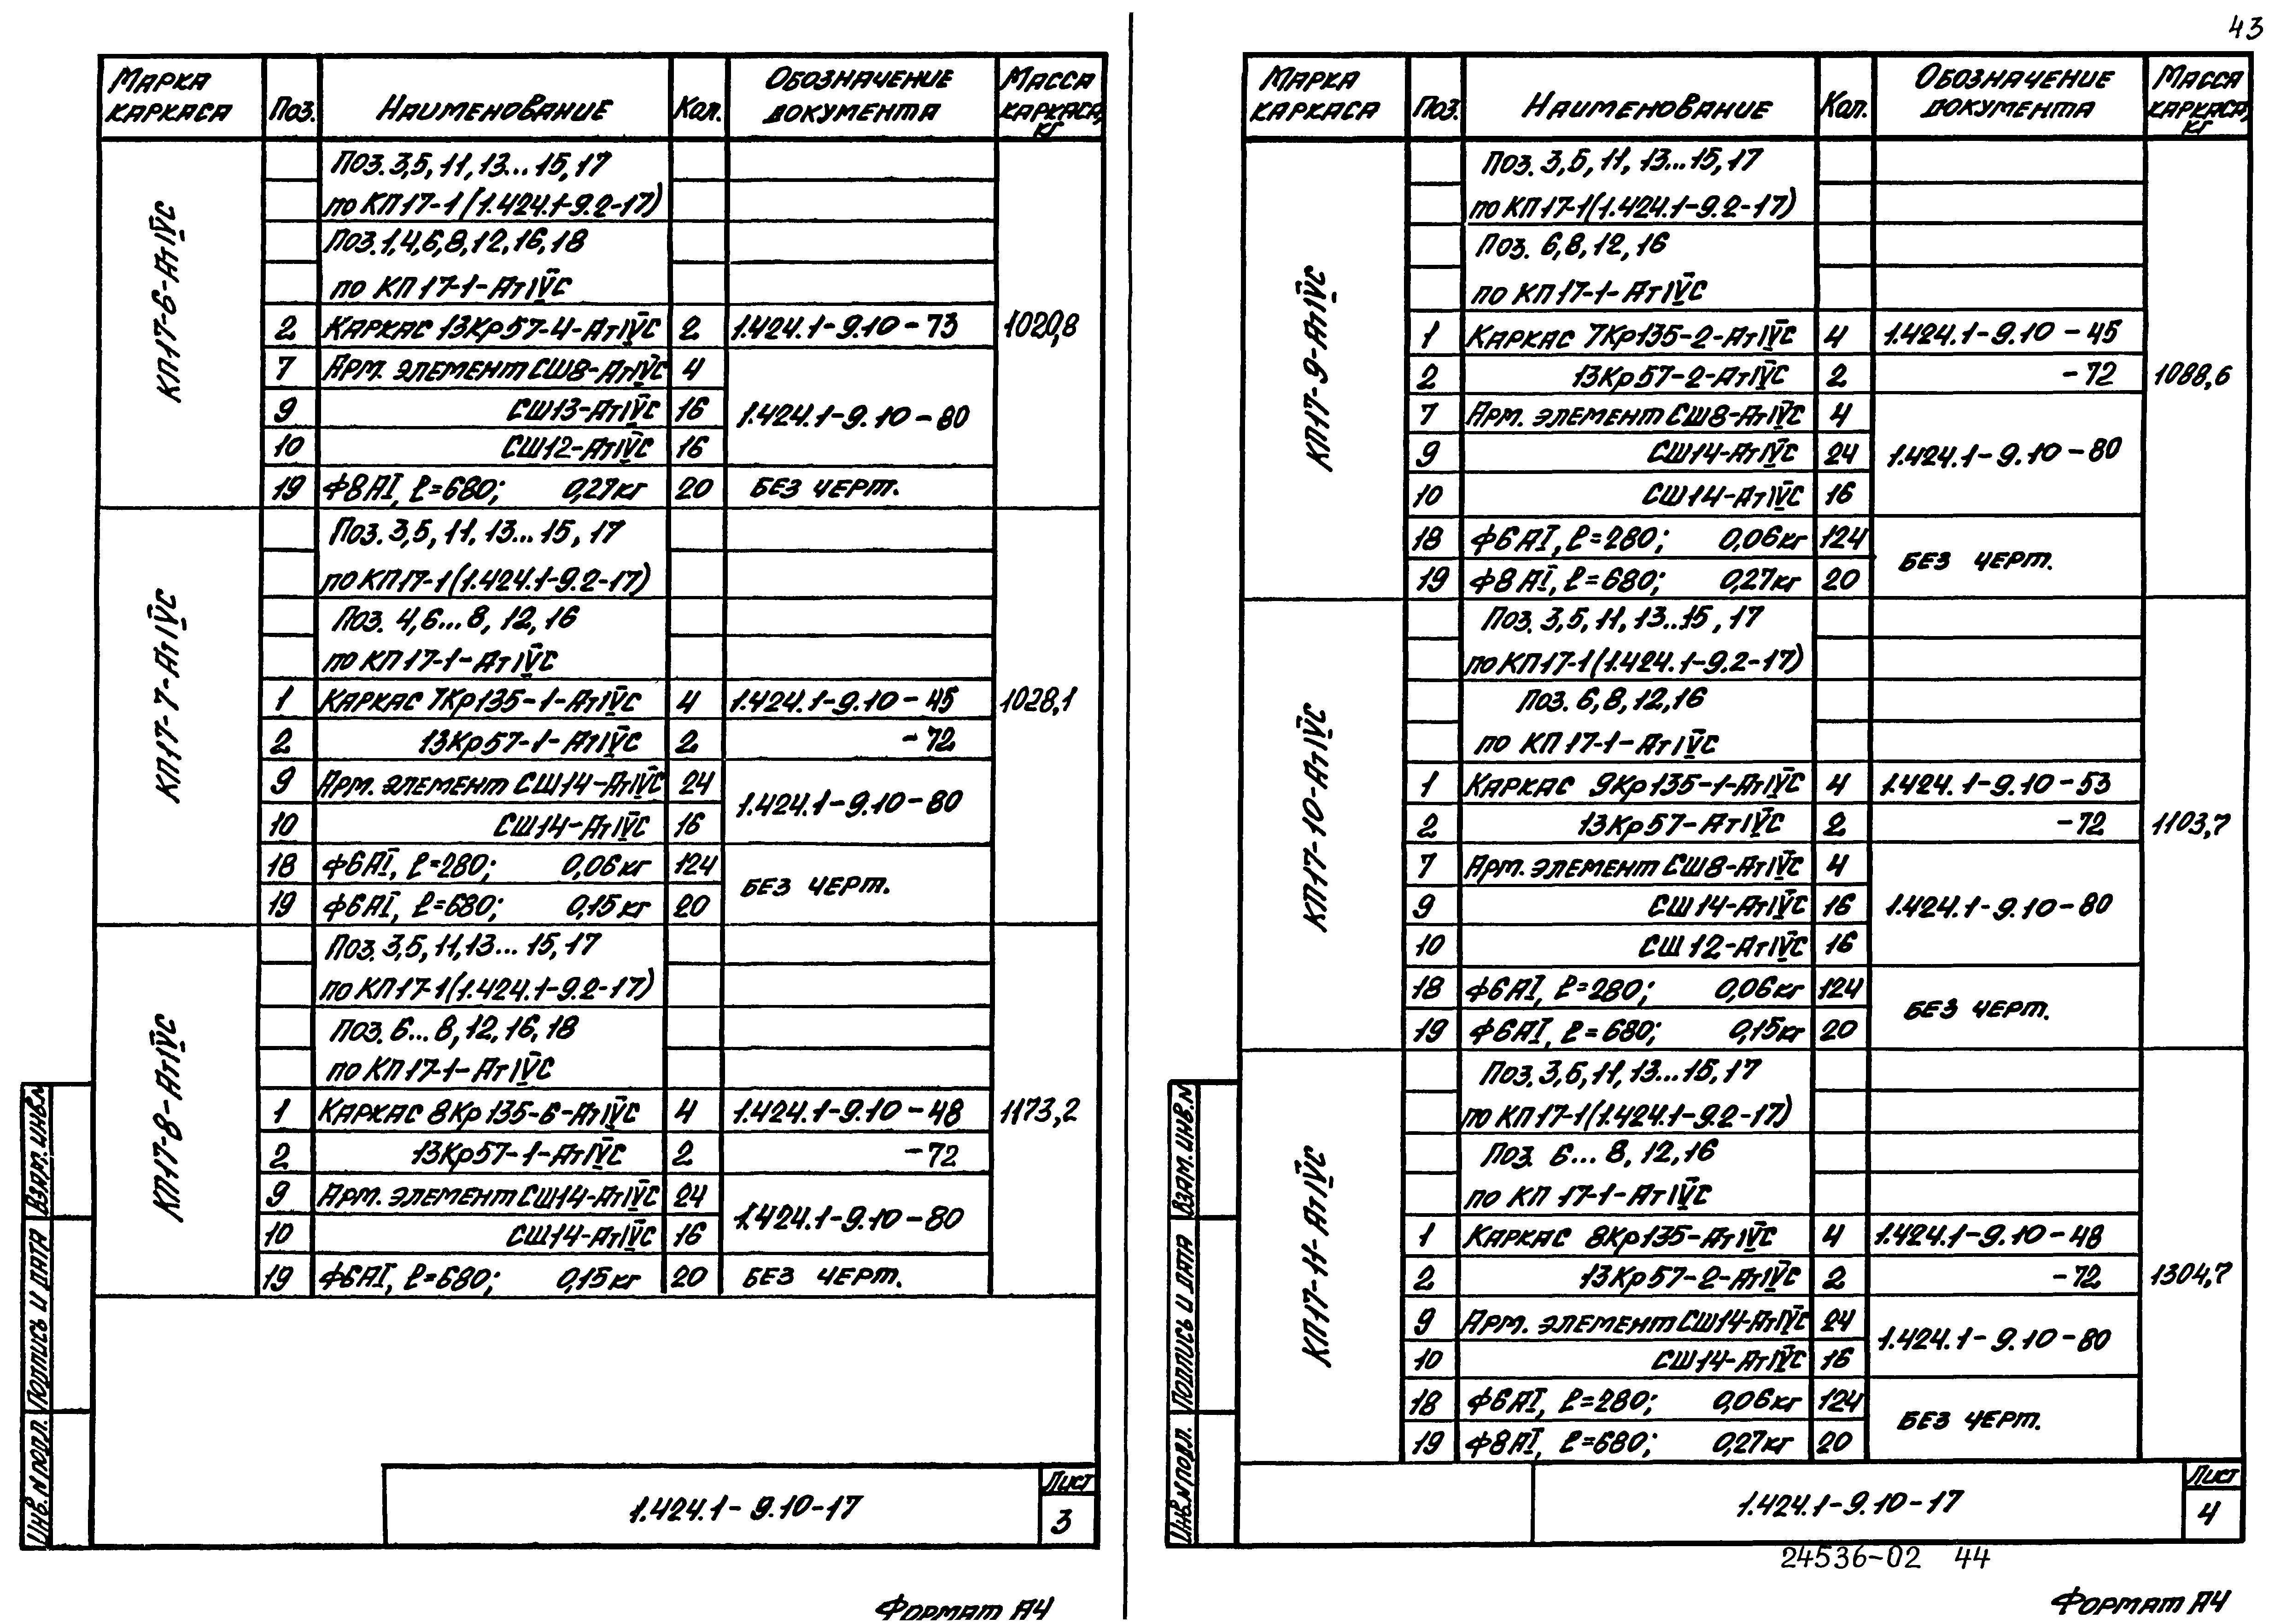 43
Марка каркаса Поз. Наименование Кол. Обозначение документа Масса каркаса, кг
КП17-6-АтIVС
Поз. 3,5,11,13...15,17
по КП17-1 (1.424.1-9.2-17)
Поз. 1,4,6,8,12,16,18
по КП17-1-АтIVС
2 Каркас 13Кр57-4-АтIVС 2 1.424.1-9.10-73 1020,8
7 Арм. элемент СШ8-АтIVС 4
9 СШ13-АтIVС 16 1.424.1-9.10-80
10 СШ12-АтIVС 16
19 Ф8АI, ℓ=680; 0,27кг 20 без черт.
КП17-7-АтIVС
Поз. 3,5,11,13...15,17
по КП17-1 (1.424.1-9.2-17)
Поз. 4,6...8,12,16
по КП17-1-АтIVС
1 Каркас 7Кр135-1-АтIVС 4 1.424.1-9.10-45 1028,1
2 13Кр57-1-АтIVС 2 -72
9 Арм. элемент СШ14-АтIVС 24 1.424.1-9.10-80
10 СШ14-АтIVС 16
18 Ф6АI, ℓ=280; 0,06кг 124 без черт.
19 Ф6АI, ℓ=680; 0,15кг 20
КП17-8-АтIVС
Поз. 3,5,11,13...15,17
по КП17-1 (1.424.1-9.2-17)
Поз. 6...8,12,16,18
по КП17-1-АтIVС
1 Каркас 8Кр135-6-АтIVС 4 1.424.1-9.10-48 1173,2
2 13Кр57-1-АтIVС 2 -72
9 Арм. элемент СШ14-АтIVС 24 1.424.1-9.10-80
10 СШ14-АтIVС 16
19 Ф6АI, ℓ=680; 0,15кг 20 без черт.
Взам. инв. N
Подпись и дата
Инв. N подл.
1.424.1-9.10-17
Лист
3
Формат А4
Марка каркаса Поз. Наименование Кол. Обозначение документа Масса каркаса, кг
КП17-9-АтIVС
Поз. 3,5,11,13...15,17
по КП17-1 (1.424.1-9.2-17)
Поз. 6,8,12,16
по КП17-1-АтIVС
1 Каркас 7Кр135-2-АтIVС 4 1.424.1-9.10-45
2 13Кр57-2-АтIVС 2 -72 1088,6
7 Арм. элемент СШ8-АтIVС 4
9 СШ14-АтIVС 24 1.424.1-9.10-80
10 СШ14-АтIVС 16
18 Ф6АI, ℓ=280; 0,06кг 124 без черт.
19 Ф8АI, ℓ=680; 0,27кг 20
КП17-10-АтIVС
Поз. 3,5,11,13...15,17
по КП17-1 (1.424.1-9.2-17)
Поз. 6,8,12,16
по КП17-1-АтIVС
1 Каркас 9Кр135-1-АтIVС 4 1.424.1-9.10-53
2 13Кр57-АтIVС 2 -72 1103,7
7 Арм. элемент СШ8-АтIVС 4
9 СШ14-АтIVС 16 1.424.1-9.10-80
10 СШ12-АтIVС 16
18 Ф6АI, ℓ=280; 0,06кг 124 без черт.
19 Ф6АI, ℓ=680; 0,15кг 20
КП17-11-АтIVС
Поз. 3,5,11,13...15,17
по КП17-1 (1.424.1-9.2-17)
Поз. 6...8,12,16
по КП17-1-АтIVС
1 Каркас 8Кр135-АтIVС 4 1.424.1-9.10-48
2 13Кр57-2-АтIVС 2 -72 1304,7
9 Арм. элемент СШ14-АтIVС 24 1.424.1-9.10-80
10 СШ14-АтIVС 16
18 Ф6АI, ℓ=280; 0,06кг 124 без черт.
19 Ф8АI, ℓ=680; 0,27кг 20
Взам. инв. N
Подпись и дата
Инв. N подл.
1.424.1-9.10-17
Лист
4
24536-02 44
Формат А4